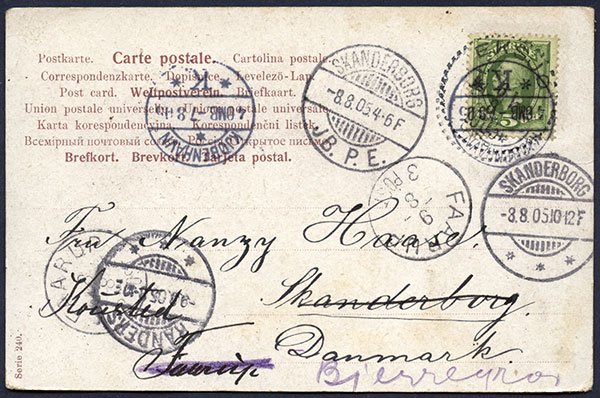 Postkarte. Carte postale. Cartolina postale.
Correspondenzkarte. Dopisnice. Levelező-Lap.
Post card. Weltpostverein. Briefkaart.
Union postale universelle. Union postale universale.
Karta korespondencyjna. Korespondenční lístek.
Всемірный почтовый союзъ. Россія. Открытое письмо.
Brefkort. Brevkort. Tarjeta postal.
SKANDERBORG
-8.8.05 4-6 F
JB. P. E.
K
KJØBENHAVN
FAARUP
9
8
3 POST
SKANDERBORG
-8.8.05 10-12 F
FAARUP
RANDERS
Fru Nanzy Haase.
Skanderborg.
Faarup
Danmark.
Bjerregrav
Serie 240.